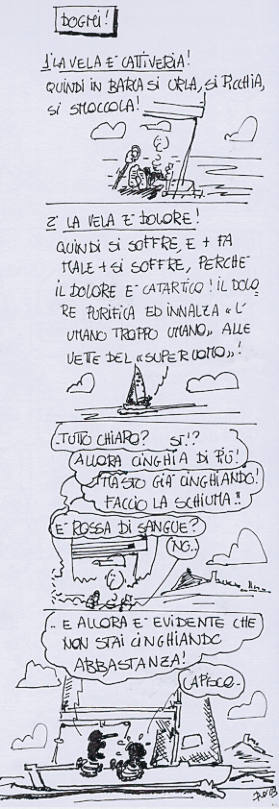 DOGMI!
1° LA VELA E' CATTIVERIA!
QUINDI IN BARCA SI URLA, SI PICCHIA,
SI SMOCCOLA!
2° LA VELA E' DOLORE!
QUINDI SI SOFFRE, E + FA
MALE + SI SOFFRE, PERCHE'
IL DOLORE E' CATARTICO! IL DOLO
RE PURIFICA ED INNALZA «L'
UMANO TROPPO UMANO» ALLE
VETTE DEL «SUPERUOMO»!
TUTTO CHIARO? SI!?
ALLORA CINGHIA DI PIÙ!
MA STO GIA' CINGHIANDO!
FACCIO LA SCHIUMA!!
E' ROSSA DI SANGUE?
NO..
.. E ALLORA E' EVIDENTE CHE
NON STAI CINGHIANDO
ABBASTANZA!
CAPISCO..